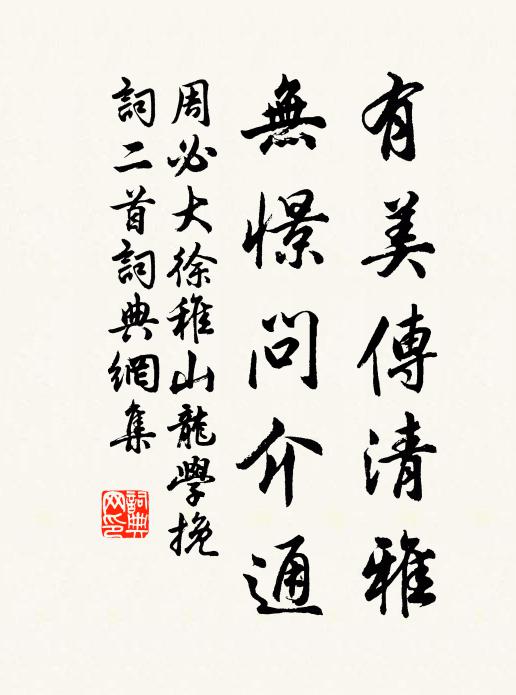 有美傳清雅
無憬問介通
周必大徐稚山龍學挽
詞二首詞典網集
詞典網印